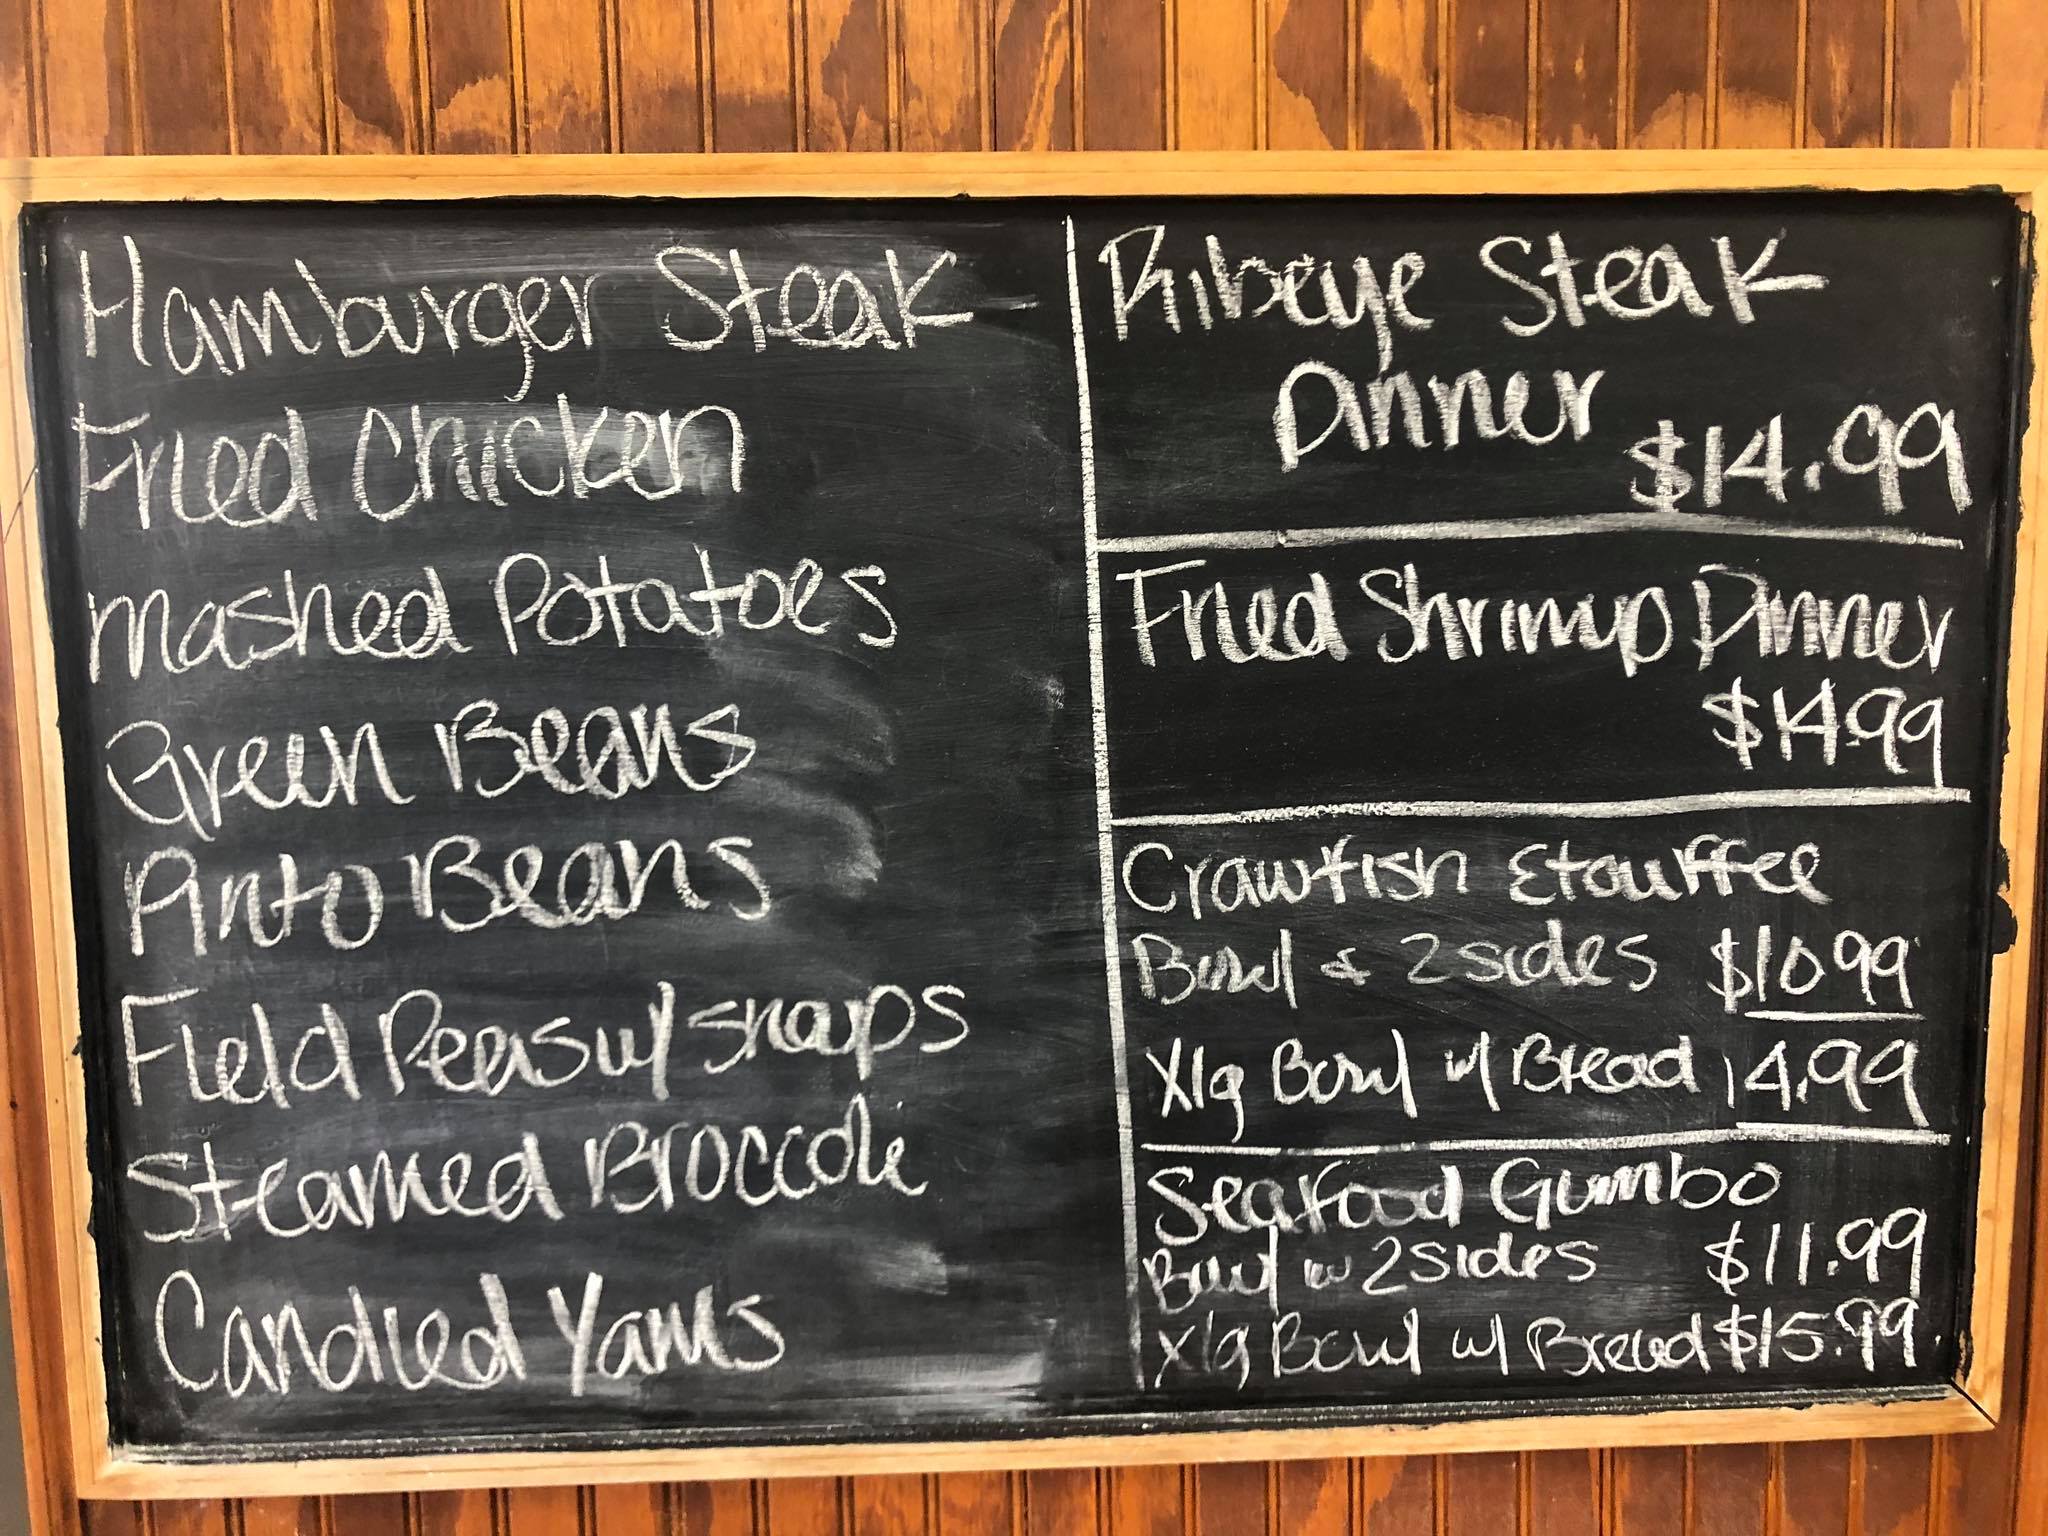 Hamburger Steak
Fried Chicken
Mashed Potatoes
Green Beans
Pinto Beans
Field Peas w/ snaps
Steamed Broccoli
Candied Yams
Ribeye Steak
Dinner
$14.99
Fried Shrimp Dinner
$14.99
Crawfish Etouffee
Bowl & 2 sides $10.99
Xlg Bowl w/ Bread 14.99
Seafood Gumbo
Bowl w 2 sides $11.99
Xlg Bowl w/ Bread $15.99